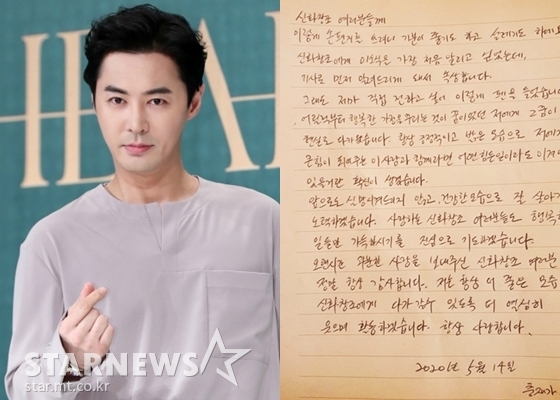 HEA
STARNEWS
star.mt.co.kr
신화창조 여러분들께
이렇게 손편지를 쓰려니 기분이 좋기도 하고 설레기도 하네요
신화창조에게 이 소식을 가장 처음 알리고 싶었는데,
기사로 먼저 알려드리게 돼서 속상합니다.
그래도 제가 직접 전하고 싶어 이렇게 펜을 들었습니다
어릴적부터 행복한 가정을 꾸리는 것이 꿈이었던 저에게 그 꿈이
현실로 다가왔습니다. 항상 긍정적이고 밝은 모습으로 저에게
큰 힘이 되어주는 이 사람과 함께라면 어떤 힘든 일이라도 이겨낼
있을거란 확신이 생겼습니다.
앞으로도 실망시켜드리지 않고, 건강한 모습으로 잘 살아가
노력하겠습니다. 사랑하는 신화창조 여러분들도 행복한
일들만 가득하시기를 진심으로 기도하겠습니다.
오랜시간 과분한 사랑을 보내주신 신화창조 여러분
정말 항상 감사합니다. 저는 항상 더 좋은 모습
신화창조에게 다가갈수 있도록 더 열심히
웃으며 활동하겠습니다. 항상 사랑합니다.
2020년 5월 14일
충재가